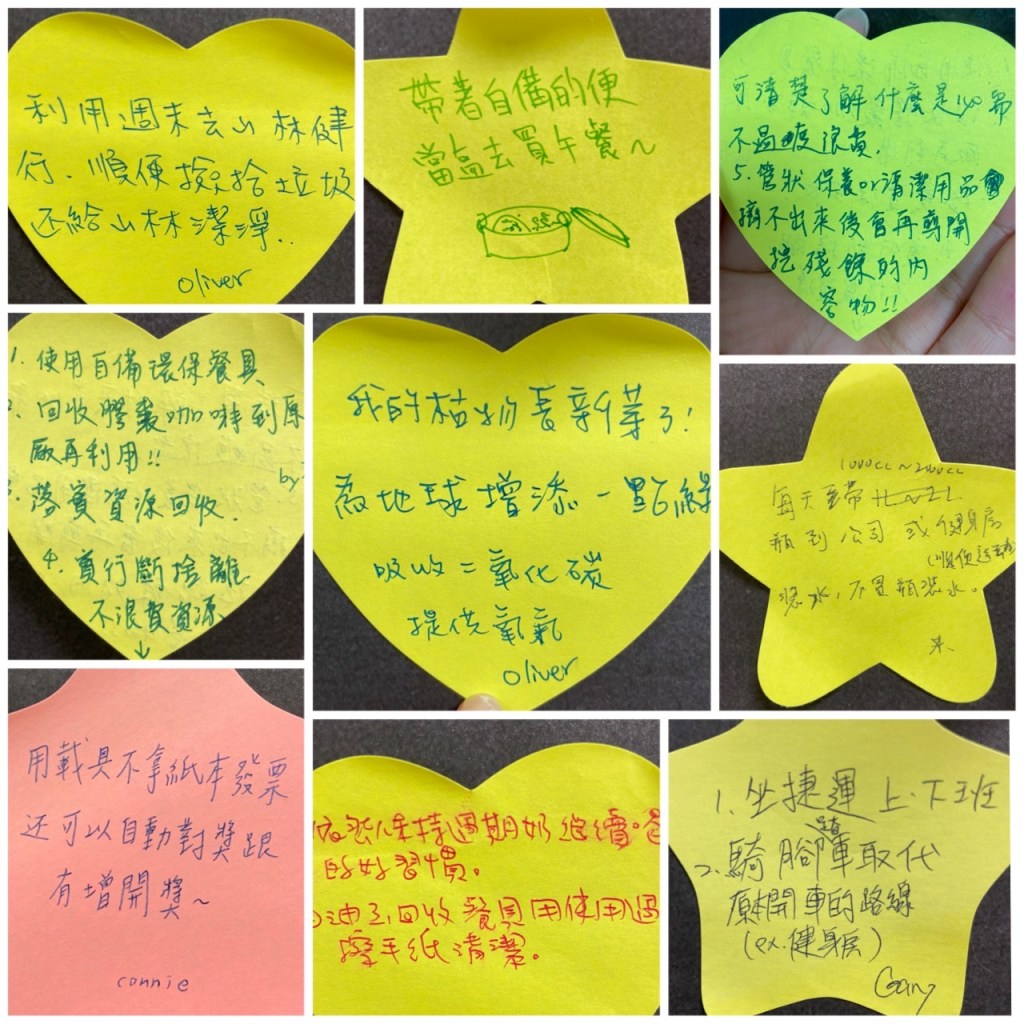 利用週末去山林健
行．順便撿拾垃圾
還給山林潔淨..
Oliver
帶著自備的便
當盒去買午餐～
可清楚了解什麼是
不過度浪費.
5. 管狀保養or清潔用品
擠不出來後會再剪開
挖殘餘的內
容物!!
1. 使用自備環保餐具
2. 回收膠囊咖啡到原
廠再利用!!
by
3. 落實資源回收.
4. 實行斷捨離
不浪費資源
↓
我的植物長新芽了!
為地球增添一點綠
吸收二氧化碳
提供氧氣
Oliver
1000cc~2000cc
每天帶
瓶到公司或健身房
裝水，不買瓶裝水。
用載具不拿紙本發票
還可以自動對獎跟
有增開獎～
connie
依然保持過期奶繼續
的好習慣。
回收餐具用使用過
擦手紙清潔。
1. 坐捷運上.下班
2. 騎腳踏車取代
原本開車的路線
(ex.健身房)
Gary